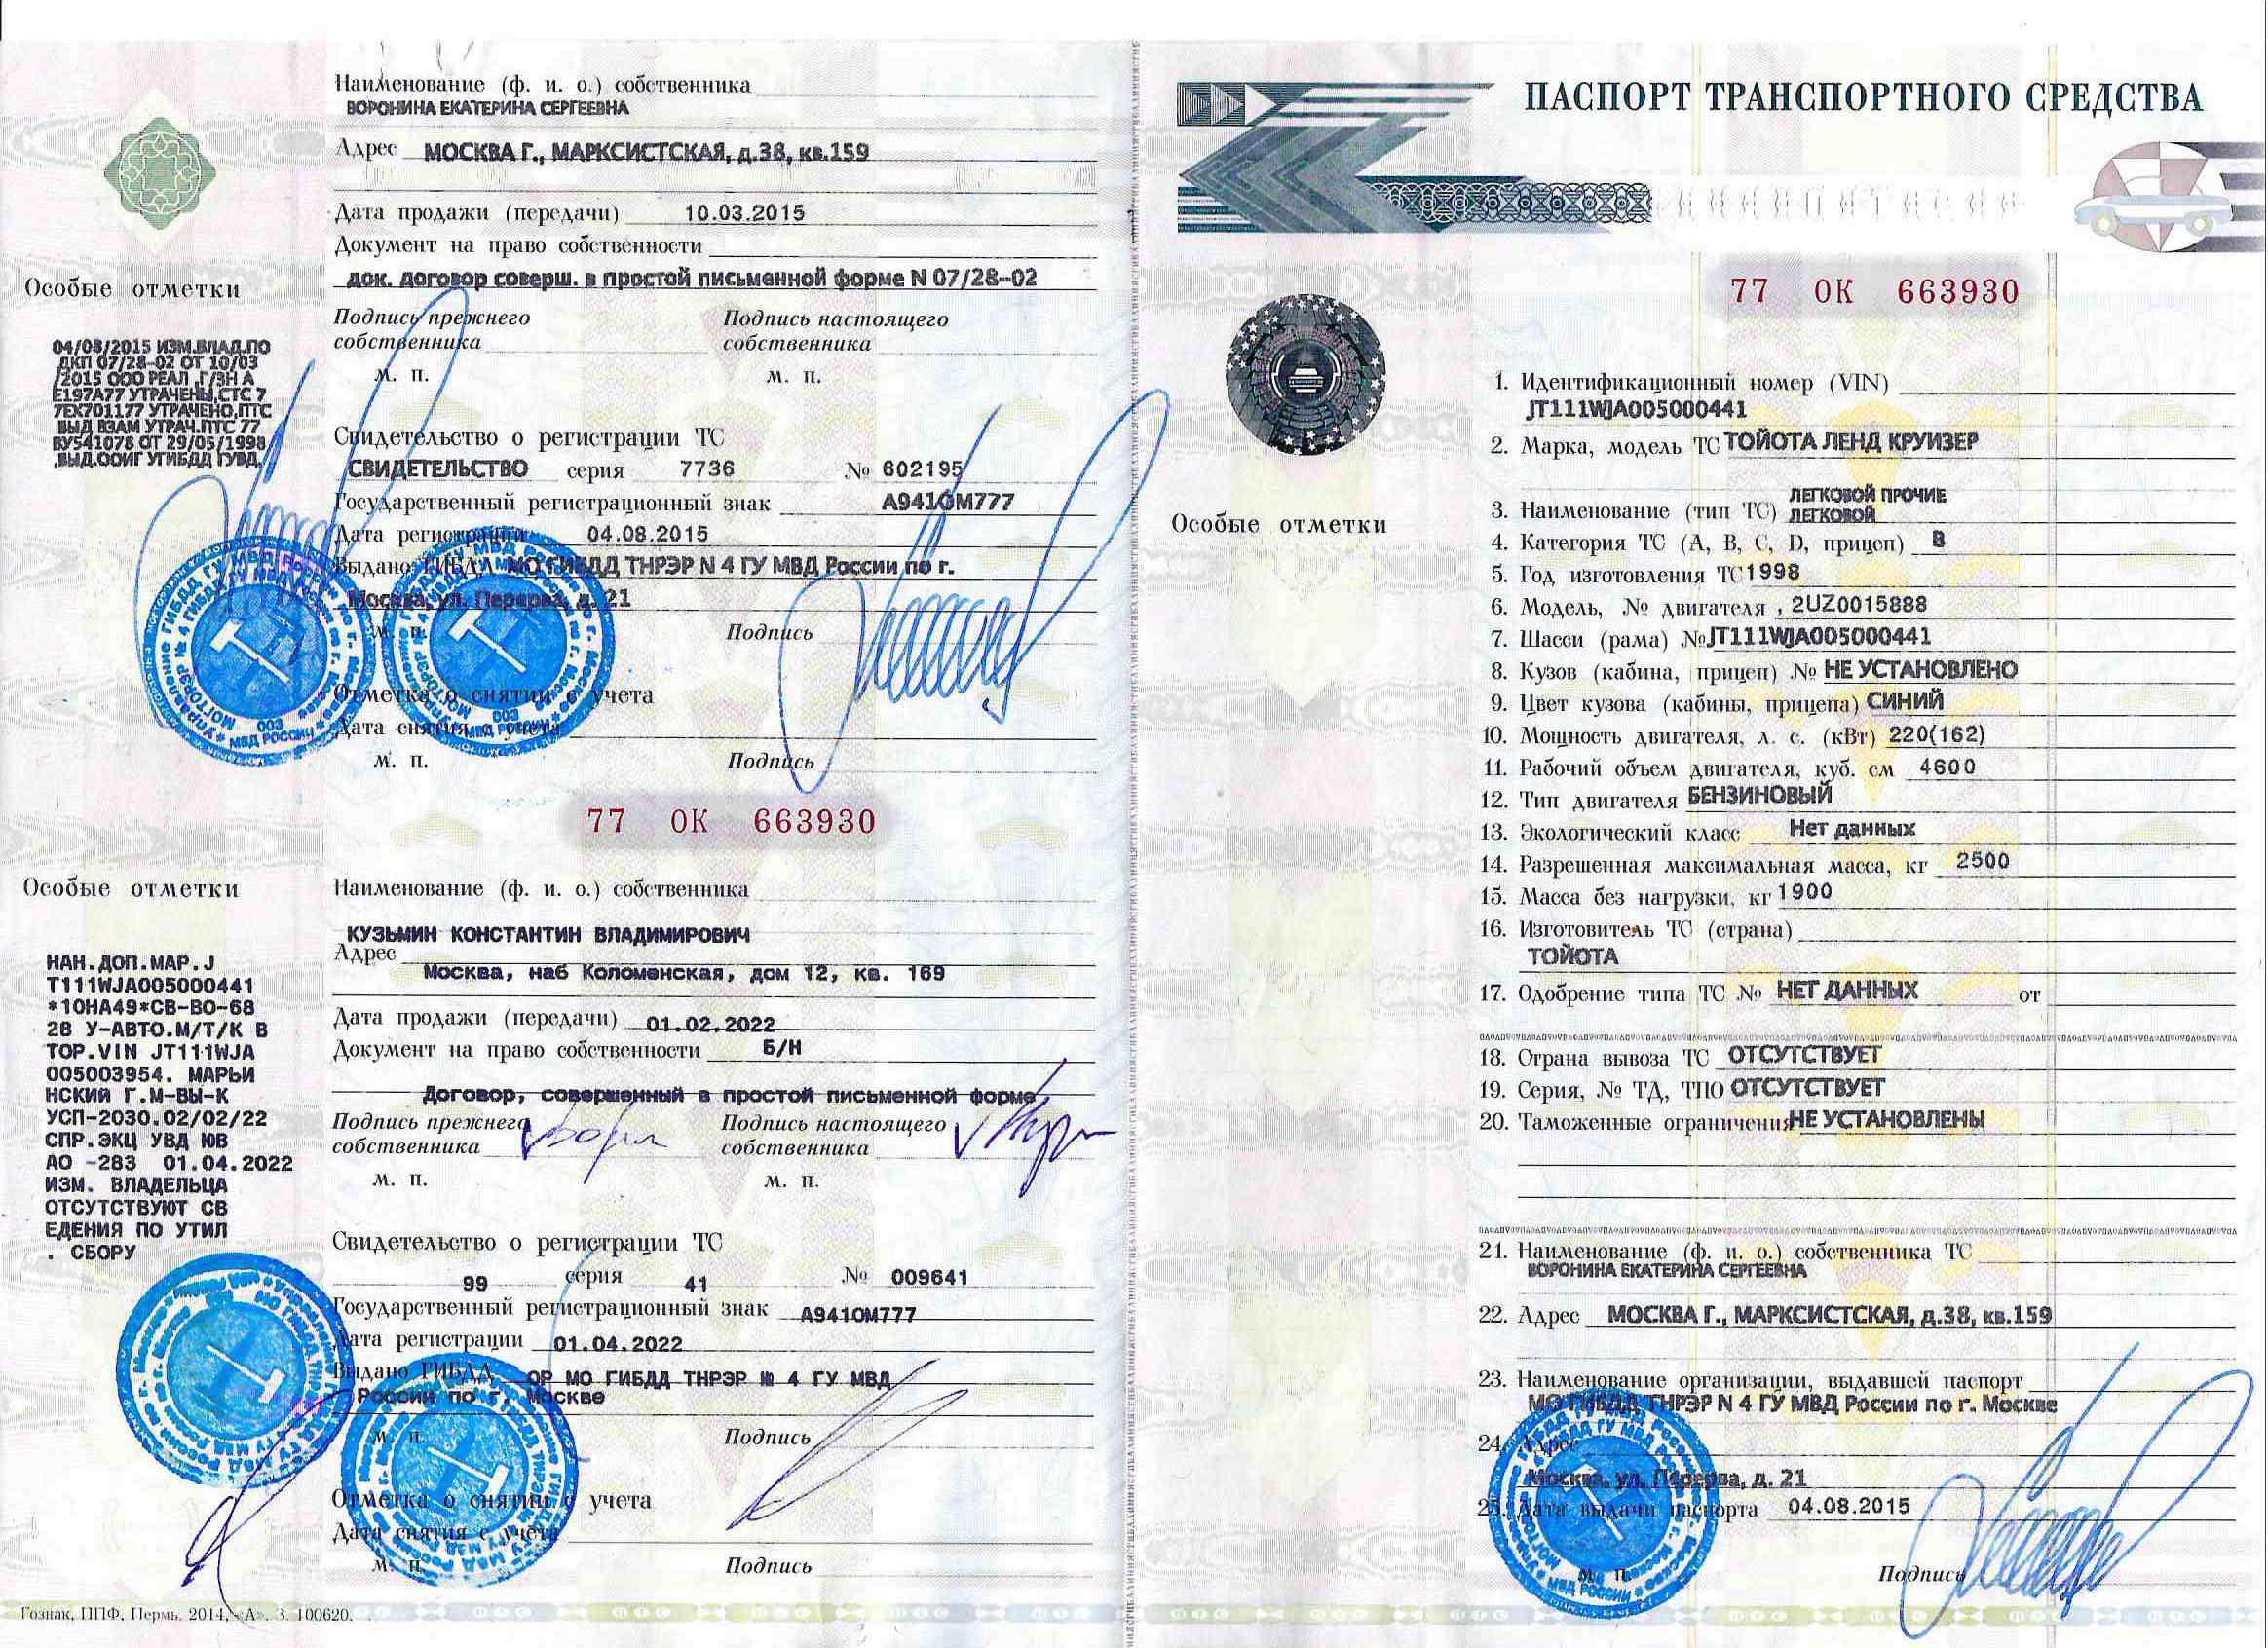 Наименование (ф. и. о.) собственника
ВОРОНИНА ЕКАТЕРИНА СЕРГЕЕВНА
Адрес МОСКВА Г., МАРКСИСТСКАЯ, д.38, кв.159
Дата продажи (передачи) 10.03.2015
Документ на право собственности
док. договор соверш. в простой письменной форме N 07/28-02
Подпись прежнего собственника
Подпись настоящего собственника
М. П.
М. П.
Свидетельство о регистрации ТС
СВИДЕТЕЛЬСТВО серия 7736 № 602195
Государственный регистрационный знак А941ОМ777
Дата регистрации 04.08.2015
Выдано ГИБДД МО ГИБДД ТНРЭР N 4 ГУ МВД России по г.
Москва, ул. Перерва, д. 21
М. П.
Подпись
Отметка о снятии с учета
Дата снятия с учета
М. П.
Подпись
Особые отметки
04/08/2015 ИЗМ.ВЛАД.ПО
ДКП 07/28-02 ОТ 10/03
/2015 ООО РЕАЛ ,Г/ЗН А
Е197А77 УТРАЧЕНЫ,СТС 7
7ЕХ701177 УТРАЧЕНО,ПТС
ВЫД ВЗАМ УТРАЧ.ПТС 77
ВУ541078 ОТ 29/05/1998
,ВЫД.ООИГ УГИБДД ГУВД,
77 ОК 663930
Особые отметки
НАН.ДОП.МАР.J
T111WJA005000441
*10НА49*СВ-ВО-68
28 У-АВТО.М/Т/К В
ТОР.VIN JT111WJA
005003954. МАРЬИ
НСКИЙ Г.М-ВЫ-К
УСП-2030.02/02/22
СПР.ЭКЦ УВД ЮВ
АО -283 01.04.2022
ИЗМ. ВЛАДЕЛЬЦА
ОТСУТСТВУЮТ СВ
ЕДЕНИЯ ПО УТИЛ
. СБОРУ
Наименование (ф. и. о.) собственника
КУЗЬМИН КОНСТАНТИН ВЛАДИМИРОВИЧ
Адрес
Москва, наб Коломенская, дом 12, кв. 169
Дата продажи (передачи) 01.02.2022
Документ на право собственности Б/Н
Договор, совершенный в простой письменной форме
Подпись прежнего собственника
Подпись настоящего собственника
М. П.
М. П.
Свидетельство о регистрации ТС
99 серия 41 № 009641
Государственный регистрационный знак А941ОМ777
Дата регистрации 01.04.2022
Выдано ГИБДД ОР МО ГИБДД ТНРЭР № 4 ГУ МВД
России по г. Москве
М. П.
Подпись
Отметка о снятии с учета
Дата снятия с учета
М. П.
Подпись
Гознак, ППФ, Пермь, 2014, «А». З. 100620.
ПАСПОРТ ТРАНСПОРТНОГО СРЕДСТВА
77 ОК 663930
Особые отметки
1. Идентификационный номер (VIN)
JT111WJA005000441
2. Марка, модель ТС ТОЙОТА ЛЕНД КРУИЗЕР
3. Наименование (тип ТС) ЛЕГКОВОЙ ПРОЧИЕ
ЛЕГКОВОЙ
4. Категория ТС (A, B, C, D, прицеп) В
5. Год изготовления ТС 1998
6. Модель, № двигателя , 2UZ0015888
7. Шасси (рама) № JT111WJA005000441
8. Кузов (кабина, прицеп) № НЕ УСТАНОВЛЕНО
9. Цвет кузова (кабины, прицепа) СИНИЙ
10. Мощность двигателя, л. с. (кВт) 220(162)
11. Рабочий объем двигателя, куб. см 4600
12. Тип двигателя БЕНЗИНОВЫЙ
13. Экологический класс Нет данных
14. Разрешенная максимальная масса, кг 2500
15. Масса без нагрузки, кг 1900
16. Изготовитель ТС (страна)
ТОЙОТА
17. Одобрение типа ТС № НЕТ ДАННЫХ от
18. Страна вывоза ТС ОТСУТСТВУЕТ
19. Серия, № ТД, ТПО ОТСУТСТВУЕТ
20. Таможенные ограничения НЕ УСТАНОВЛЕНЫ
21. Наименование (ф. и. о.) собственника ТС
ВОРОНИНА ЕКАТЕРИНА СЕРГЕЕВНА
22. Адрес МОСКВА Г., МАРКСИСТСКАЯ, д.38, кв.159
23. Наименование организации, выдавшей паспорт
МО ГИБДД ТНРЭР N 4 ГУ МВД России по г. Москве
24. Адрес
Москва, ул. Перерва, д. 21
25. Дата выдачи паспорта 04.08.2015
М. П.
Подпись